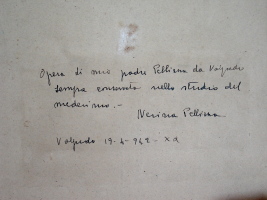 Opera di mio padre Pellizza da Volpedo
sempre conservata nello studio del
medesimo.-
Nerina Pellizza
Volpedo 19-4-942-XX